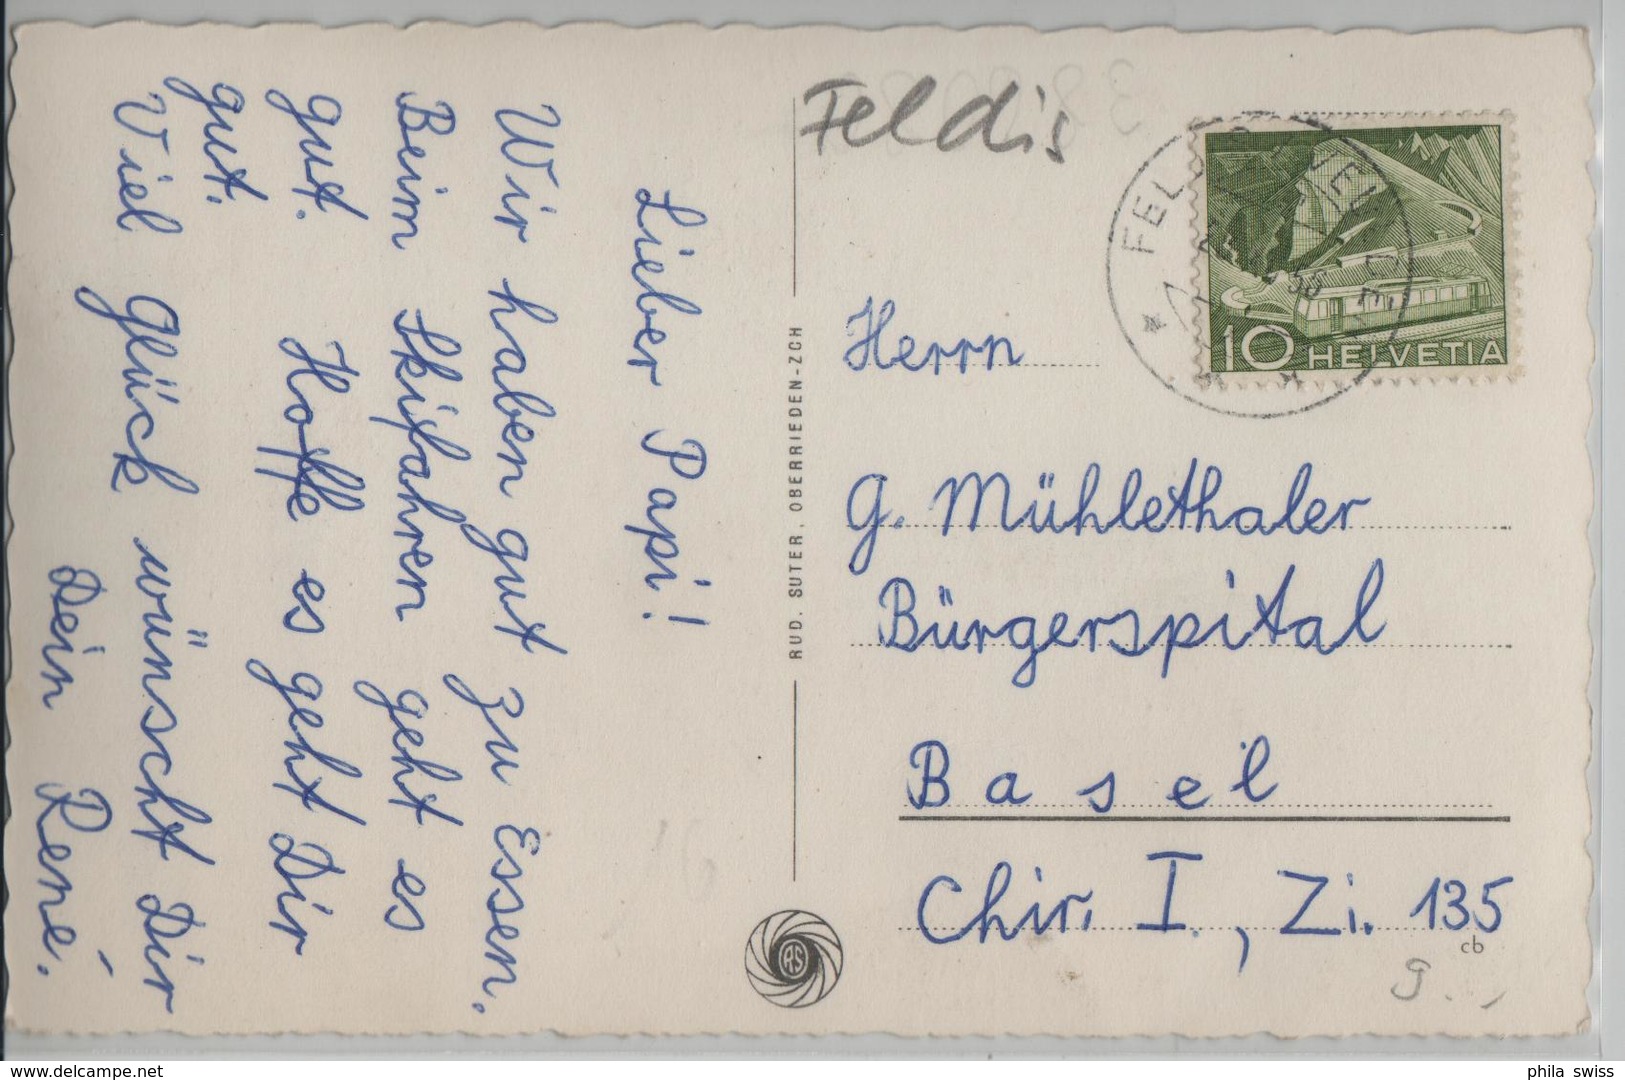 Lieber Papi!
Wir haben gut zu Essen.
Beim Skifahren geht es
gut. Hoffe es geht Dir
gut.
Viel Glück wünscht Dir
Dein René.
RUD. SUTER, OBERRIEDEN-ZCH
RS
Feldis
10 HELVETIA
Herrn
G. Mühlethaler
Bürgerspital
Basel
Chir. I., Zi. 135
cb
delcampe.net
phila swiss